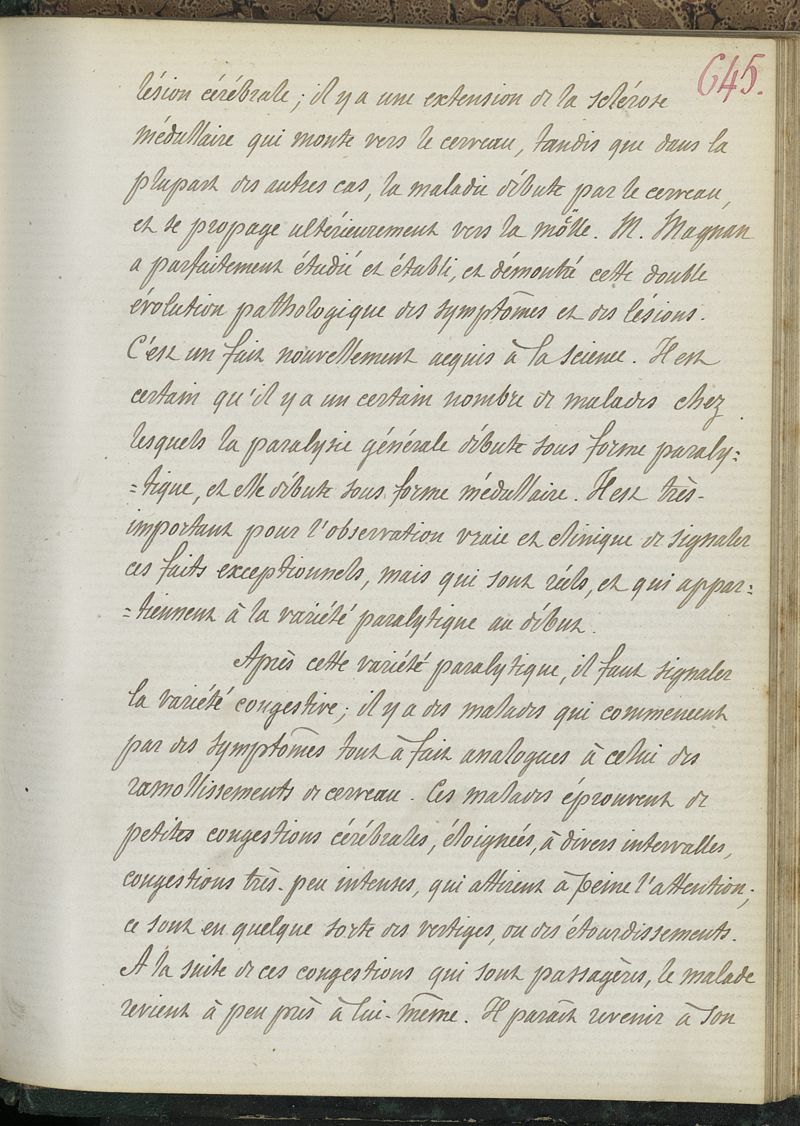 645.
lésion cérébrale ; il y a une extension de la sclérose
médullaire qui monte vers le cerveau, tandis que dans la
plupart des autres cas, la maladie débute par le cerveau,
et se propage ultérieurement vers la moëlle. M. Magnan
a parfaitement étudié et établi, et démontré cette double
évolution pathologique des symptômes et des lésions.
C'est un fait nouvellement acquis à la science. Il est
certain qu'il y a un certain nombre de malades chez
lesquels la paralysie générale débute sous forme paraly=
=tique, et elle débute sous forme médullaire. Il est très-
important pour l'observation vraie et clinique de signaler
ces faits exceptionnels, mais qui sont réels, et qui appar=
=tiennent à la variété paralytique au début.
Après cette variété paralytique, il faut signaler
la variété congestive ; il y a des malades qui commencent
par des symptômes tout à fait analogues à celui des
ramollissements de cerveau. Ces malades éprouvent de
petites congestions cérébrales, éloignées, à divers intervalles,
congestions très-peu intenses, qui attirent à peine l'attention ;
ce sont en quelque sorte des vertiges, ou des étourdissements.
A la suite de ces congestions qui sont passagères, le malade
revient à peu près à lui-même. Il paraît revenir à son